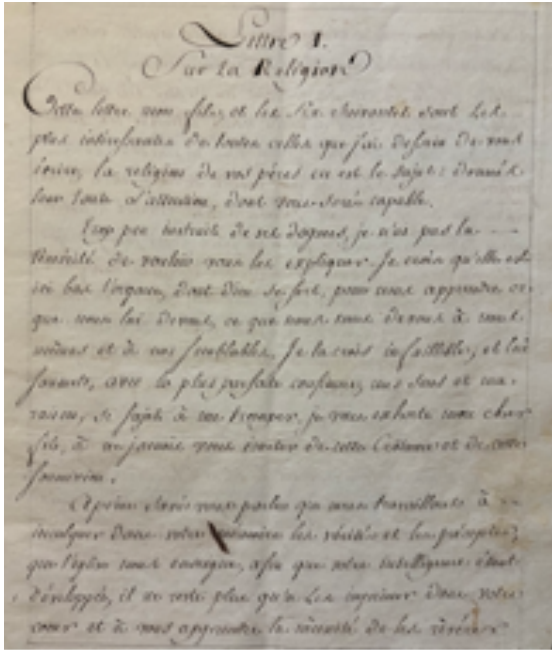 Lettre 1.
Sur la Religion
Cette lettre mon fils, et les six suivantes sont les
plus intéressantes de toutes celles que j'ai dessein de vous
écrire, la religion de vos pères en est le sujet: donnés
leur toute l'attention, dont vous serés capable.
Trop peu instruit de ses dogmes, je n'ai pas la
témérité de vouloir vous les expliquer. Je crois qu'elle est
ici bas l'organe, dont dieu se sert, pour nous apprendre ce
que nous lui devons, ce que nous nous devons à nous
mêmes et à nos semblables. Je la crois infaillible, et lui
soumets, avec la plus parfaite confiance, mes sens et ma
raison, si sujets à me tromper. je vous exhorte mon cher
fils, à ne jamais vous écarter de cette croiance et de cette
soumission.
A peine saviés vous parler que nous travaillions à
inculquer dans votre mémoire les vérités et les préceptes,
que l'église nous enseigne, afin que votre intelligence étant
développée, il ne reste plus qu'à les imprimer dans votre
cœur et à vous apprendre la nécessité de les révérer